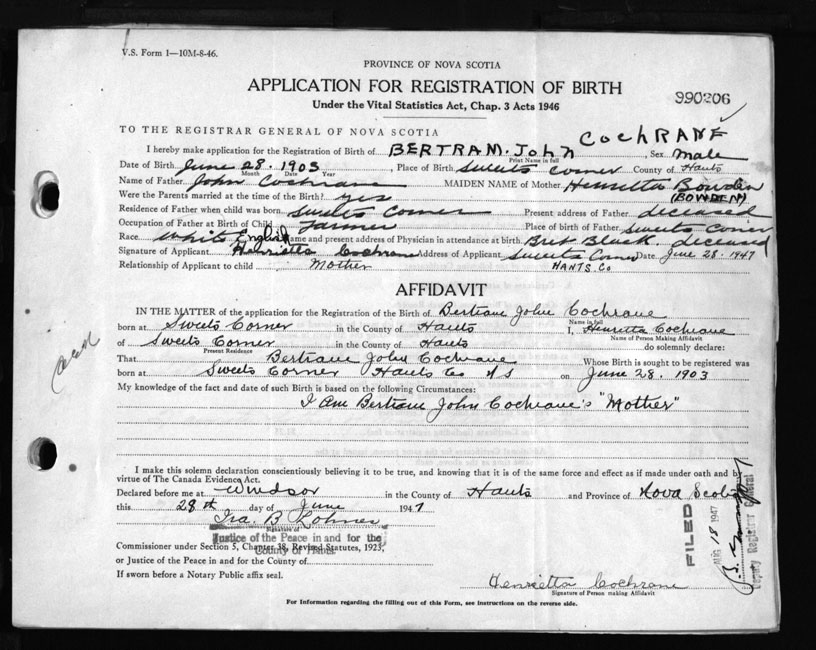 V.S. Form 1—10M-8-46.
PROVINCE OF NOVA SCOTIA
APPLICATION FOR REGISTRATION OF BIRTH
990206
Under the Vital Statistics Act, Chap. 3 Acts 1946
TO THE REGISTRAR GENERAL OF NOVA SCOTIA
I hereby make application for the Registration of Birth of BERTRAM. John COCHRANE, Sex Male
Print Name in full
Date of Birth June 28. 1903, Place of Birth Sweets Corner County of Hants
Month Date Year
Name of Father John Cochrane MAIDEN NAME of Mother Henrietta Bowden
(BOWDEN)
Were the Parents married at the time of the Birth? yes
Residence of Father when child was born Sweets Corner Present address of Father deceased
Occupation of Father at Birth of Child Farmer Place of birth of Father Sweets Corner
Race White English Name and present address of Physician in attendance at birth. Black. deceased
Signature of Applicant Henrietta Cochrane Address of Applicant Sweets Corner Date June 28. 1947
Relationship of Applicant to child Mother HANTS. Co
AFFIDAVIT
IN THE MATTER of the application for the Registration of the Birth of Bertram John Cochrane
Name in full
born at Sweets Corner in the County of Hants I, Henrietta Cochrane
Name of Person Making Affidavit
of Sweets Corner in the County of Hants do solemnly declare:
Present Residence
That Bertram John Cochrane Whose Birth is sought to be registered was
born at Sweets Corner Hants Co N S on June 28. 1903
My knowledge of the fact and date of such Birth is based on the following Circumstances:
I Am Bertram John Cochrane's "Mother"
I make this solemn declaration conscientiously believing it to be true, and knowing that it is of the same force and effect as if made under oath and by
virtue of The Canada Evidence Act.
Declared before me at Windsor in the County of Hants and Province of Nova Scotia
this 28th day of June 1947
Ira. B
Signature of
Justice of the Peace in and for the
County of Hants
Commissioner under Section 5, Chapter 38, Revised Statutes, 1923,
or Justice of the Peace in and for the County of
If sworn before a Notary Public affix seal.
FILED
18 1947
Deputy Registrar General
Henrietta Cochrane
Signature of Person making Affidavit
For Information regarding the filling out of this Form, see instructions on the reverse side.